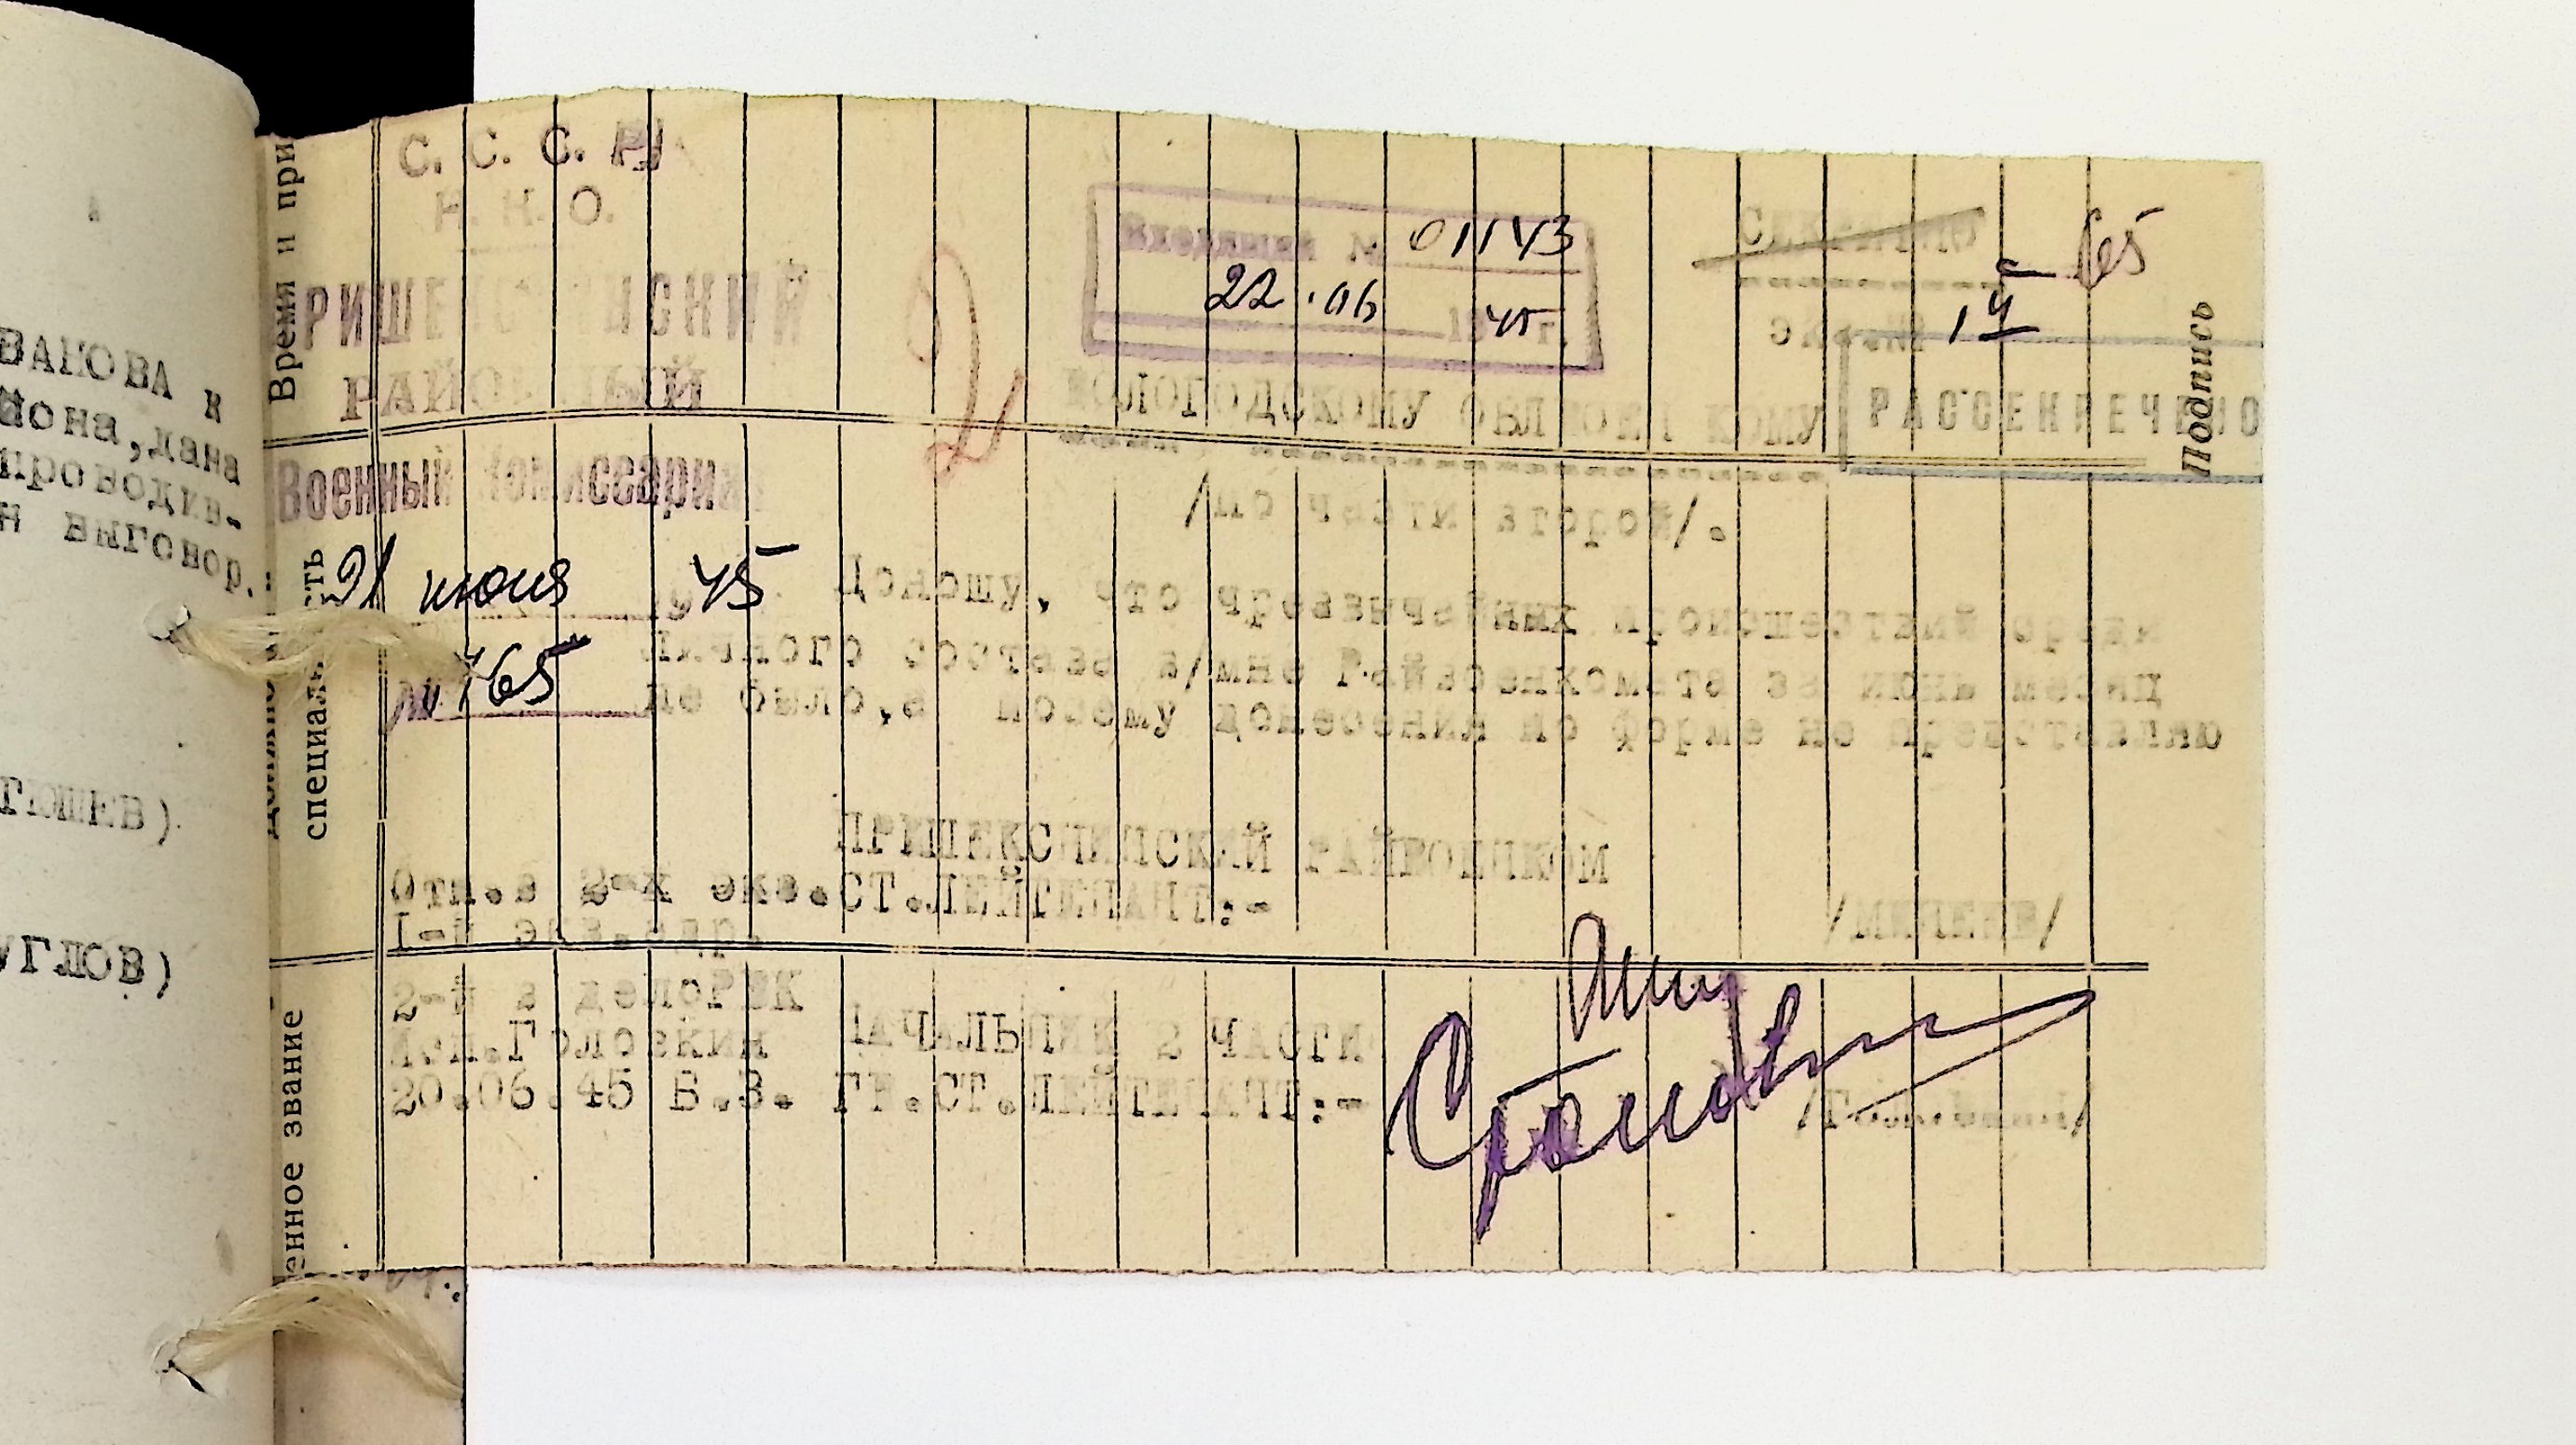 ВАКОВА к
йона,дана
проводив-
н выговор.
ГЮШЕВ)
УГЛОВ)
Время и при
специальность
енное звание
Подпись
С. С. С. Р.
Н. К. О.
ПРИШЕКСНИНСКИЙ
РАЙОННЫЙ
Военный Комиссариат
21 июня 1945
№ 765
Входящий № 01143
22.06 1945 г.
Секретно
экз.№ 1
65
14
РАССЕКРЕЧЕНО
ВОЛОГОДСКОМУ ОБЛВОЕНКОМУ
/по части второй/.
Доношу, что чрезвычайных происшествий среди
Личного состава в/мне Райвоенкомата за июнь месяц
не было,а потому донесения по форме не представляю
ПРИШЕКСНИНСКИЙ РАЙВОЕНКОМ
СТ.ЛЕЙТЕНАНТ:-
Отп.в 2-х экз.
1-й экз.адр.
2-й в делоРВК
исп.Головкин
20.06.45 В.З.
НАЧАЛЬНИК 2 ЧАСТИ
СТ.ЛЕЙТЕНАНТ:-